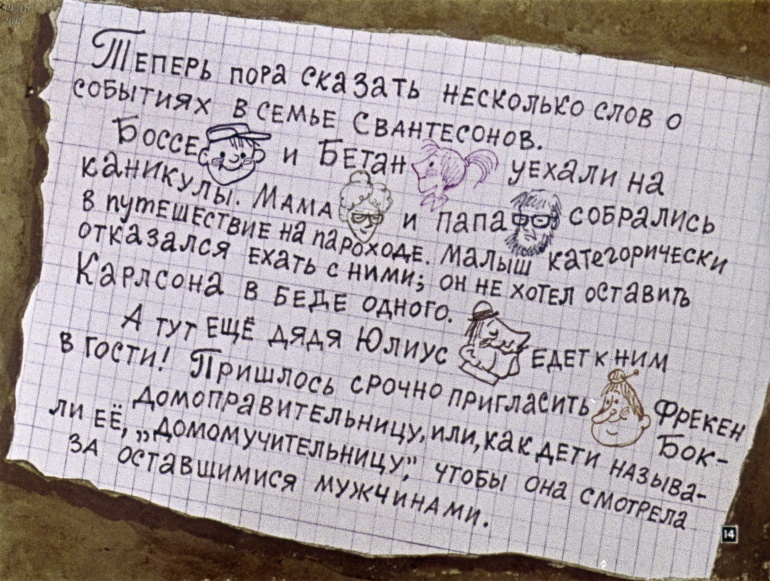 Теперь пора сказать несколько слов о
событиях в семье Свантесонов.
Боссе и Бетан уехали на
каникулы. Мама и папа собрались
в путешествие на пароходе. Малыш категорически
отказался ехать с ними; он не хотел оставить
Карлсона в беде одного.
А тут ещё дядя Юлиус едет к ним
в гости! Пришлось срочно пригласить фрекен Бок-
домоправительницу, или, как дети называ-
ли её, „домомучительницу”, чтобы она смотрела
за оставшимися мужчинами.
14